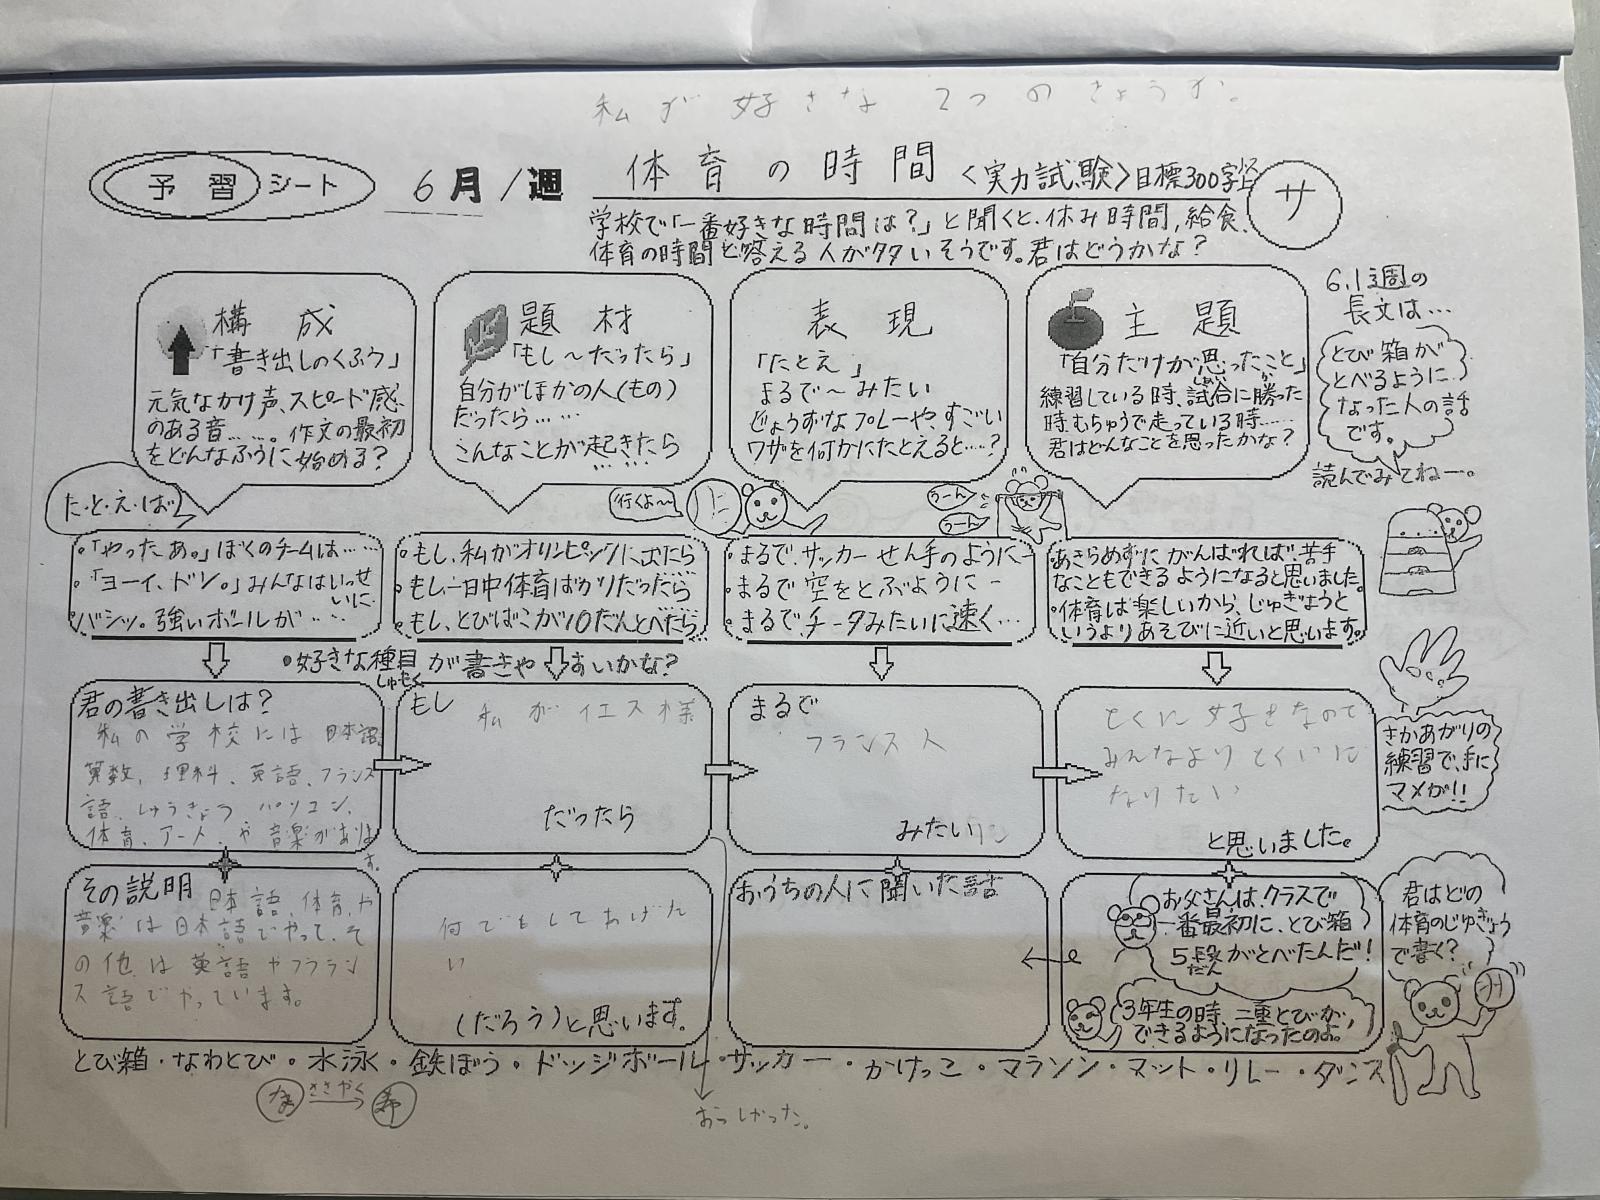 私が好きな2つのきょうか。
予習シート
6月1週
体育の時間
<実力試験>目標300字以上
サ
学校で「一番好きな時間は?」と聞くと、休み時間,給食、
体育の時間と答える人が多いそうです。君はどうかな?
構成
「書き出しのくふう」
元気なかけ声、スピード感
のある音……。作文の最初
をどんなふうに始める?
題材
「もし~だったら」
自分がほかの人(もの)
だったら……
こんなことが起きたら
……
表現
「たとえ」
まるで~みたい
じょうずなプレーや、すごい
ワザを何かにたとえると……?
主題
「自分だけが思ったこと」
練習している時、試合に勝った
しあい
か
時、むちゅうで走っている時……
君はどんなことを思ったかな?
6.1週の
長文は…
とび箱が
とべるように
なった人の話
です。
読んでみてねー。
た・と・え・ば
行くよ~
うーん
うーん
・「やったあ。」ぼくのチームは……
・「ヨーイ、ドン。」みんなはいっせ
いに…
・バシッ。強いボールが……
・もし、私がオリンピックに出たら
・もし、一日中体育ばかりだったら
・もし、とびばこが10だんとべたら
・まるで、サッカーせん手のように-
・まるで空をとぶように-
・まるでチータみたいに速く…
・あきらめずにがんばれば、苦手
なこともできるようになると思いました。
・体育は楽しいから、じゅぎょうと
いうよりあそびに近いと思います。
・好きな種目が書きやすいかな?
しゅもく
君の書き出しは?
私の学校には日本語、
算数、理科、英語、フランス
語、しゅうきょう パソコン、
体育、アート、や音楽があります。
もし
私がイエス様
だったら
まるで
フランス人
みたい
とくに好きなので
みんなよりとくいに
なりたい
と思いました。
さかあがりの
練習で、手に
マメが!!
その説明
日本語、体育、や
音楽は日本語でやって、そ
の他は英語やフララン
ス語でやっています。
何でもしてあげた
い
(だろう)と思います。
おうちの人に聞いた話
お父さんは、クラスで
一番最初に、とび箱
5段がとべたんだ!
だん
3年生の時、二重とびが、
できるようになったのよ。
君はどの
体育のじゅぎょう
で書く?
とび箱・なわとび・水泳・鉄ぼう・ドッジボール・サッカー・かけっこ・マラソン・マット・リレー・ダンス
ささやく